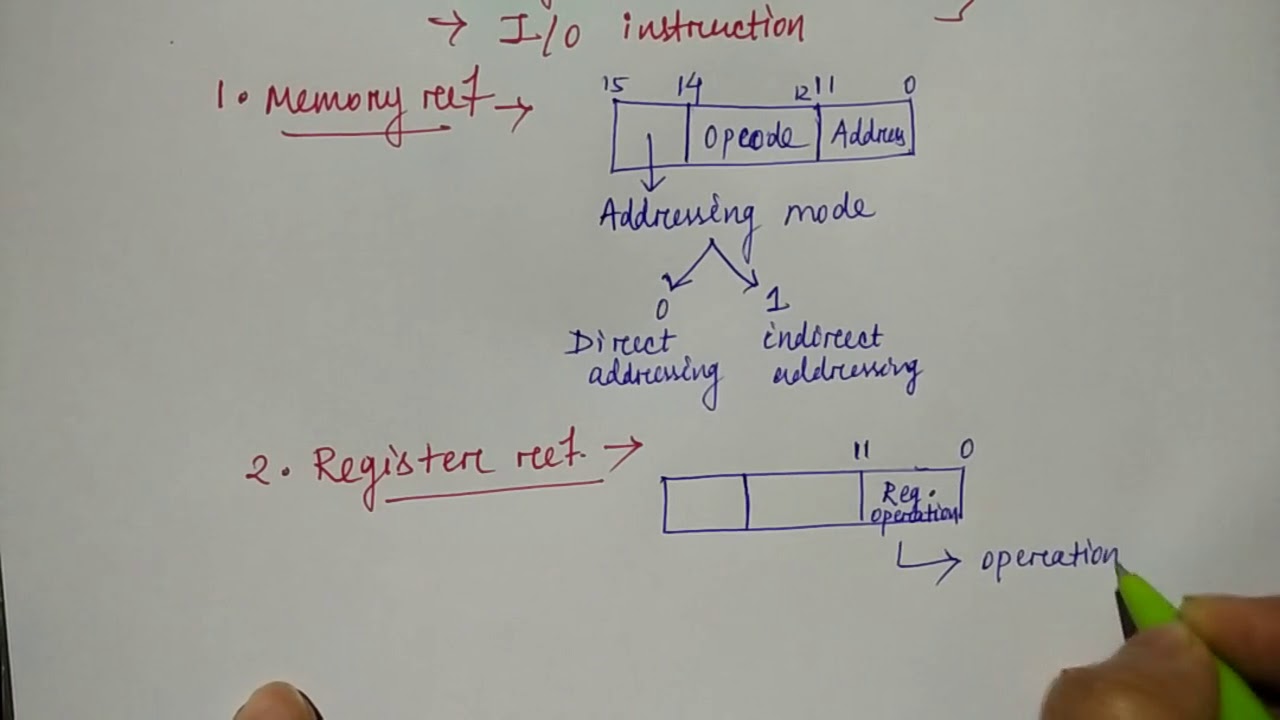 → I/O instruction
1. Memory ref →
15 14 12 11 0
Opcode Address
Addressing mode
0 1
Direct indirect
addressing addressing
2. Register ref. →
11 0
Reg.
operation
→ operation